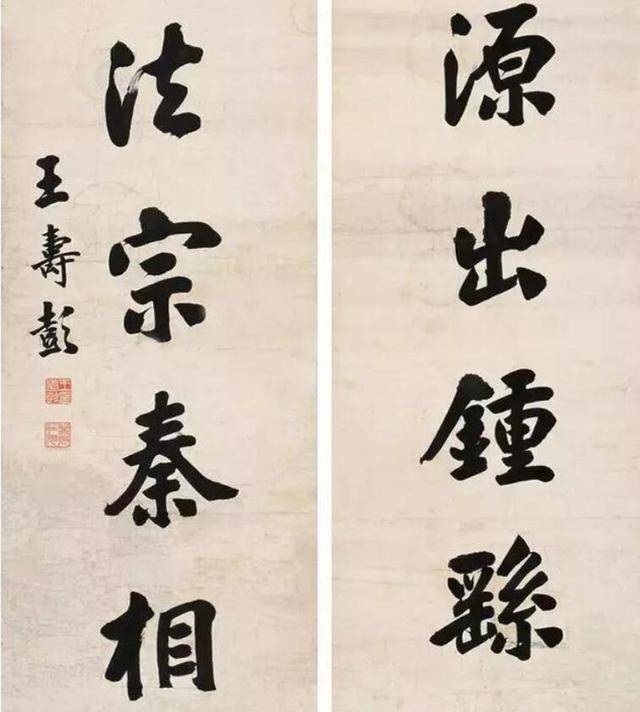 源出鍾繇
法宗秦相
王壽彭